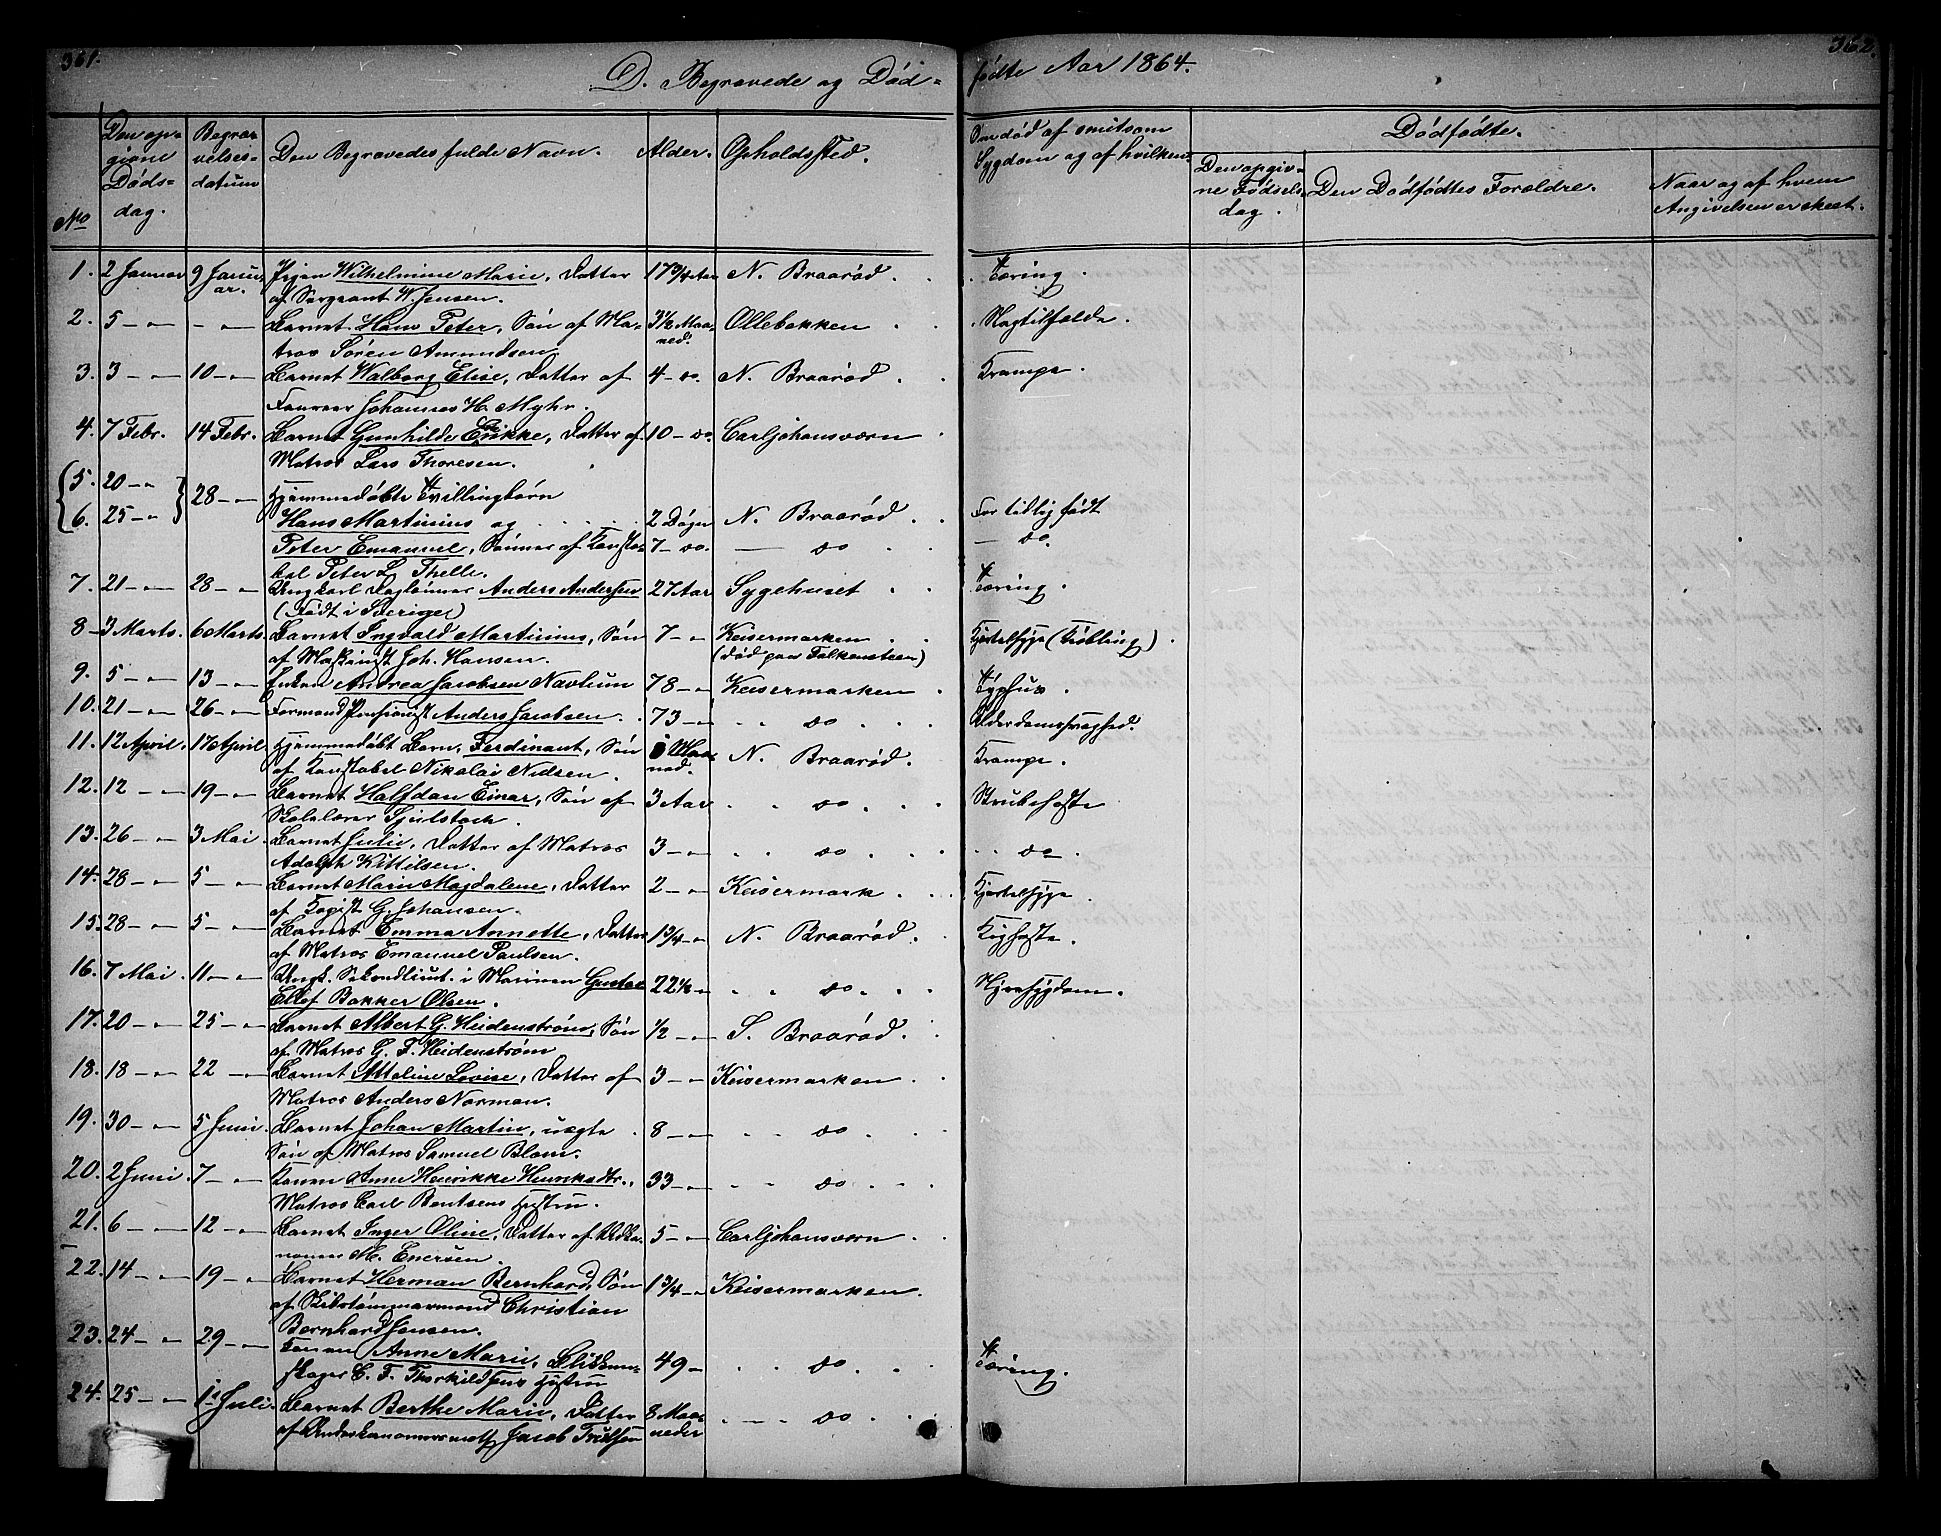 361.
362.
D. Begravede og Død-
fødte Aar 1864.
No
Den opgivne Dødsdag.
Begravelsesdatum
Den Begravedes fulde Navn.
Alder.
Opholdssted.
Om død af smitsom Sygdom og af hvilken
Dødfødte.
Den opgivne Fødselsdag.
Den Dødfødtes Forældre.
Naar og af hvem Angivelsen er skeet.
1. 2 Januar 9 Januar. Pigen Wilhelmine Marie, Datter 17 3/4 Aar N. Braarød. Tæring.
af Sergeant W. Jensen.
2. 5 — " — " — Barnet Hans Peter, Søn af Ma- 3 1/2 Maaned. Ollebakken . Slagtilfælde.
tros Sören Amundsen
3. 3 — " — 10 — " — Barnet Walborg Elise, Datter af 4 — do. N. Braarød . Krampe.
Johannes H. Myhr.
4. 7 Febr. 14 Febr. Barnet Gunhilde Erikke, Datter af 10 — do. Carljohansværn
Matros Lars Thoresen.
5. 20 — " 28 — " — Hjemmedøbte Tvillingbørn
6. 25 — " Hans Martinius og 2 Døgn N. Braarød. For tidlig født
Peter Emanuel, Sønner af Konsta- 7 — do. — do — do.
bel Peter L. Thelle.
7. 21 — " — 28 — " — Ungkarl Dagløнner Anders Andersen 27 Aar Sygehuset . Tæring.
(Født i Sverige)
8 — 3 Marts. 6 Marts. Barnet Ingvald Martinius, Søn 7 — " Keisermarken . Kjertelsyge (Krobling).
af Maskinist Joh. Hansen. (død paa Falkensteen)
9. 5 — " — 13 — " — Enken Andrea Jacobsen Navlum 78 — " Keisermarken . Typhus.
10. 21 — " — 26 — " — Formand Pensionist Anders Jacobsen. 73 — " do . Alderdomssvaghed.
11. 12 April. 17 April Hjemmedøbt Barn, Ferdinant, Søn Maaned. N. Braarød. Krampe.
af Konstabel Nikolai Nielsen.
12. 12 — " — 19 — " — Barnet Halfdan Einar, Søn af 3 Aar do . Strubehoste
Skolelærer Tjulstock.
13. 26 — " — 3 Mai. Barnet Julie, Datter af Matros 3 — " do . do.
Adolph Kittilsen.
14. 28 — " — 5 — " — Barnet Marie Magdalene, Datter 2 — " Keisermark . Kjertelsyge.
af Kopist G. Johansen.
15. 28 — " — 5 — " — Barnet Emma Annette, Datter 1 3/4 — " N. Braarød. Kighoste.
af Matros Emanuel Paulsen.
16. 7 Mai. 11 — " — Ungk. Sekondlieut. i Marinen Gustav 22 1/2 — " do . Hjernesygdom.
Ellef Bakker Olsen.
17. 20 — " — 25 — " — Barnet Albert G. Heidenstrøm, Søn 1/2 — " S. Braarød.
af Matros G. F. Heidenstrøm
18. 18 — " — 22 — " — Barnet Attoline Lovise, Datter af 3 — " Keisermarken .
Matros Anders Norman.
19. 30 — " — 5 Juni. Barnet Johan Martin, uægte 8 — " do .
Søn af Matros Samuel Blom.
20. 2 Juni. 7 — " — Konen Anne Henrikke Henriksdtr., 33 — " do .
Matros Carl Bentsens Hustru.
21. 6 — " — 12 — " — Barnet Inger Oline, Datter af Udka- 5 — " Carljohansværn .
noneer M. Enersen.
22. 14 — " — 19 — " — Barnet Herman Bernhard, Søn 1 3/4 — " Keisermarken.
af Skibstømmermand Christian
Bernhard Jensen.
23. 24 — " — 29 — " — Konen Anne Marie, Blikken- 49 — do . Tæring.
slager C. F. Thorkildsens Hustru
24. 25 — " — 1s Juli. Barnet Berthe Marie, Datter 8 Maaneder do .
af Underkanoneer Jacob Trulsen